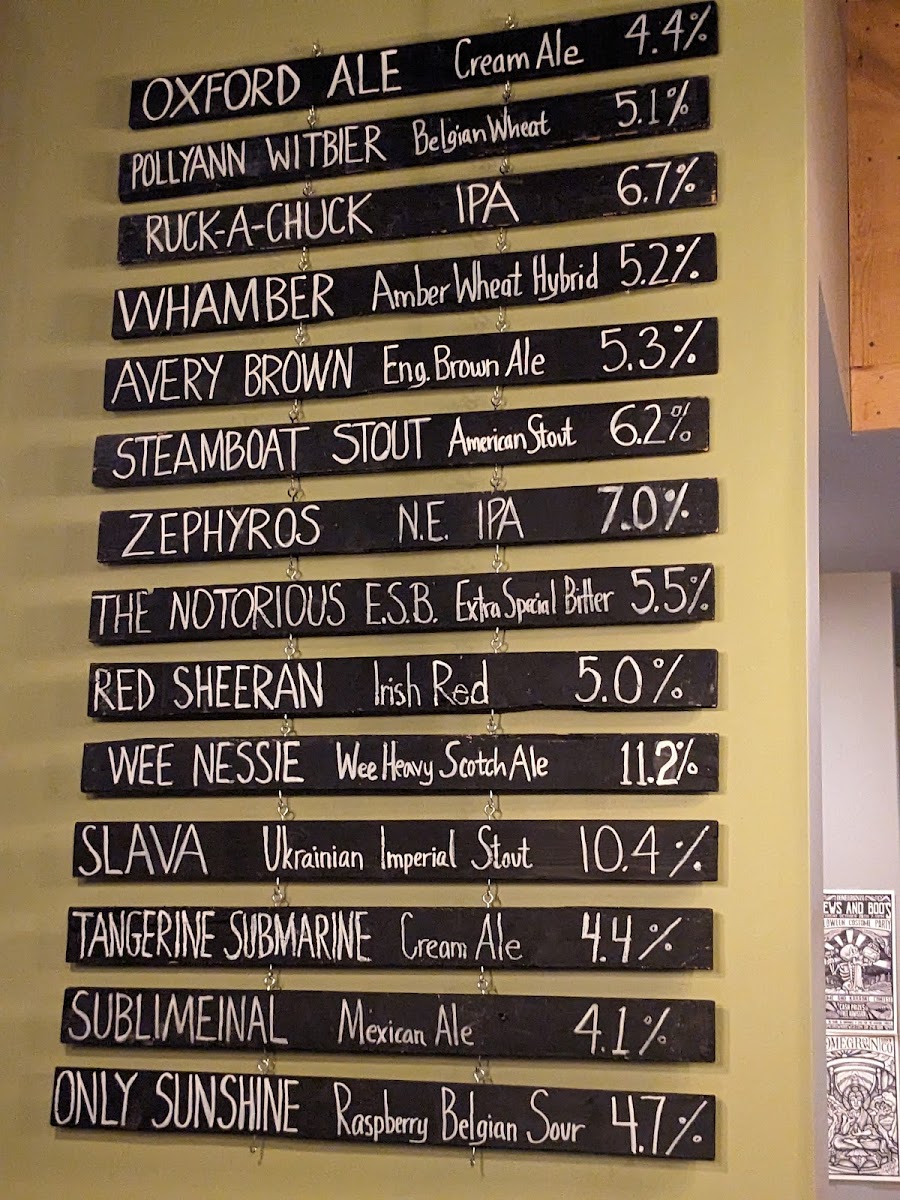 OXFORD ALE Cream Ale 4.4%
POLLYANN WITBIER Belgian Wheat 5.1%
RUCK-A-CHUCK IPA 6.7%
WHAMBER Amber Wheat Hybrid 5.2%
AVERY BROWN Eng. Brown Ale 5.3%
STEAMBOAT STOUT American Stout 6.2%
ZEPHYROS N.E. IPA 7.0%
THE NOTORIOUS E.S.B. Extra Special Bitter 5.5%
RED SHEERAN Irish Red 5.0%
WEE NESSIE Wee Heavy Scotch Ale 11.2%
SLAVA Ukrainian Imperial Stout 10.4%
TANGERINE SUBMARINE Cream Ale 4.4%
SUBLIMEINAL Mexican Ale 4.1%
ONLY SUNSHINE Raspberry Belgian Sour 4.7%
EWS AND BOO'S
WEEN COSTUME PARTY
CASH PRIZES
OMEGROWN CO